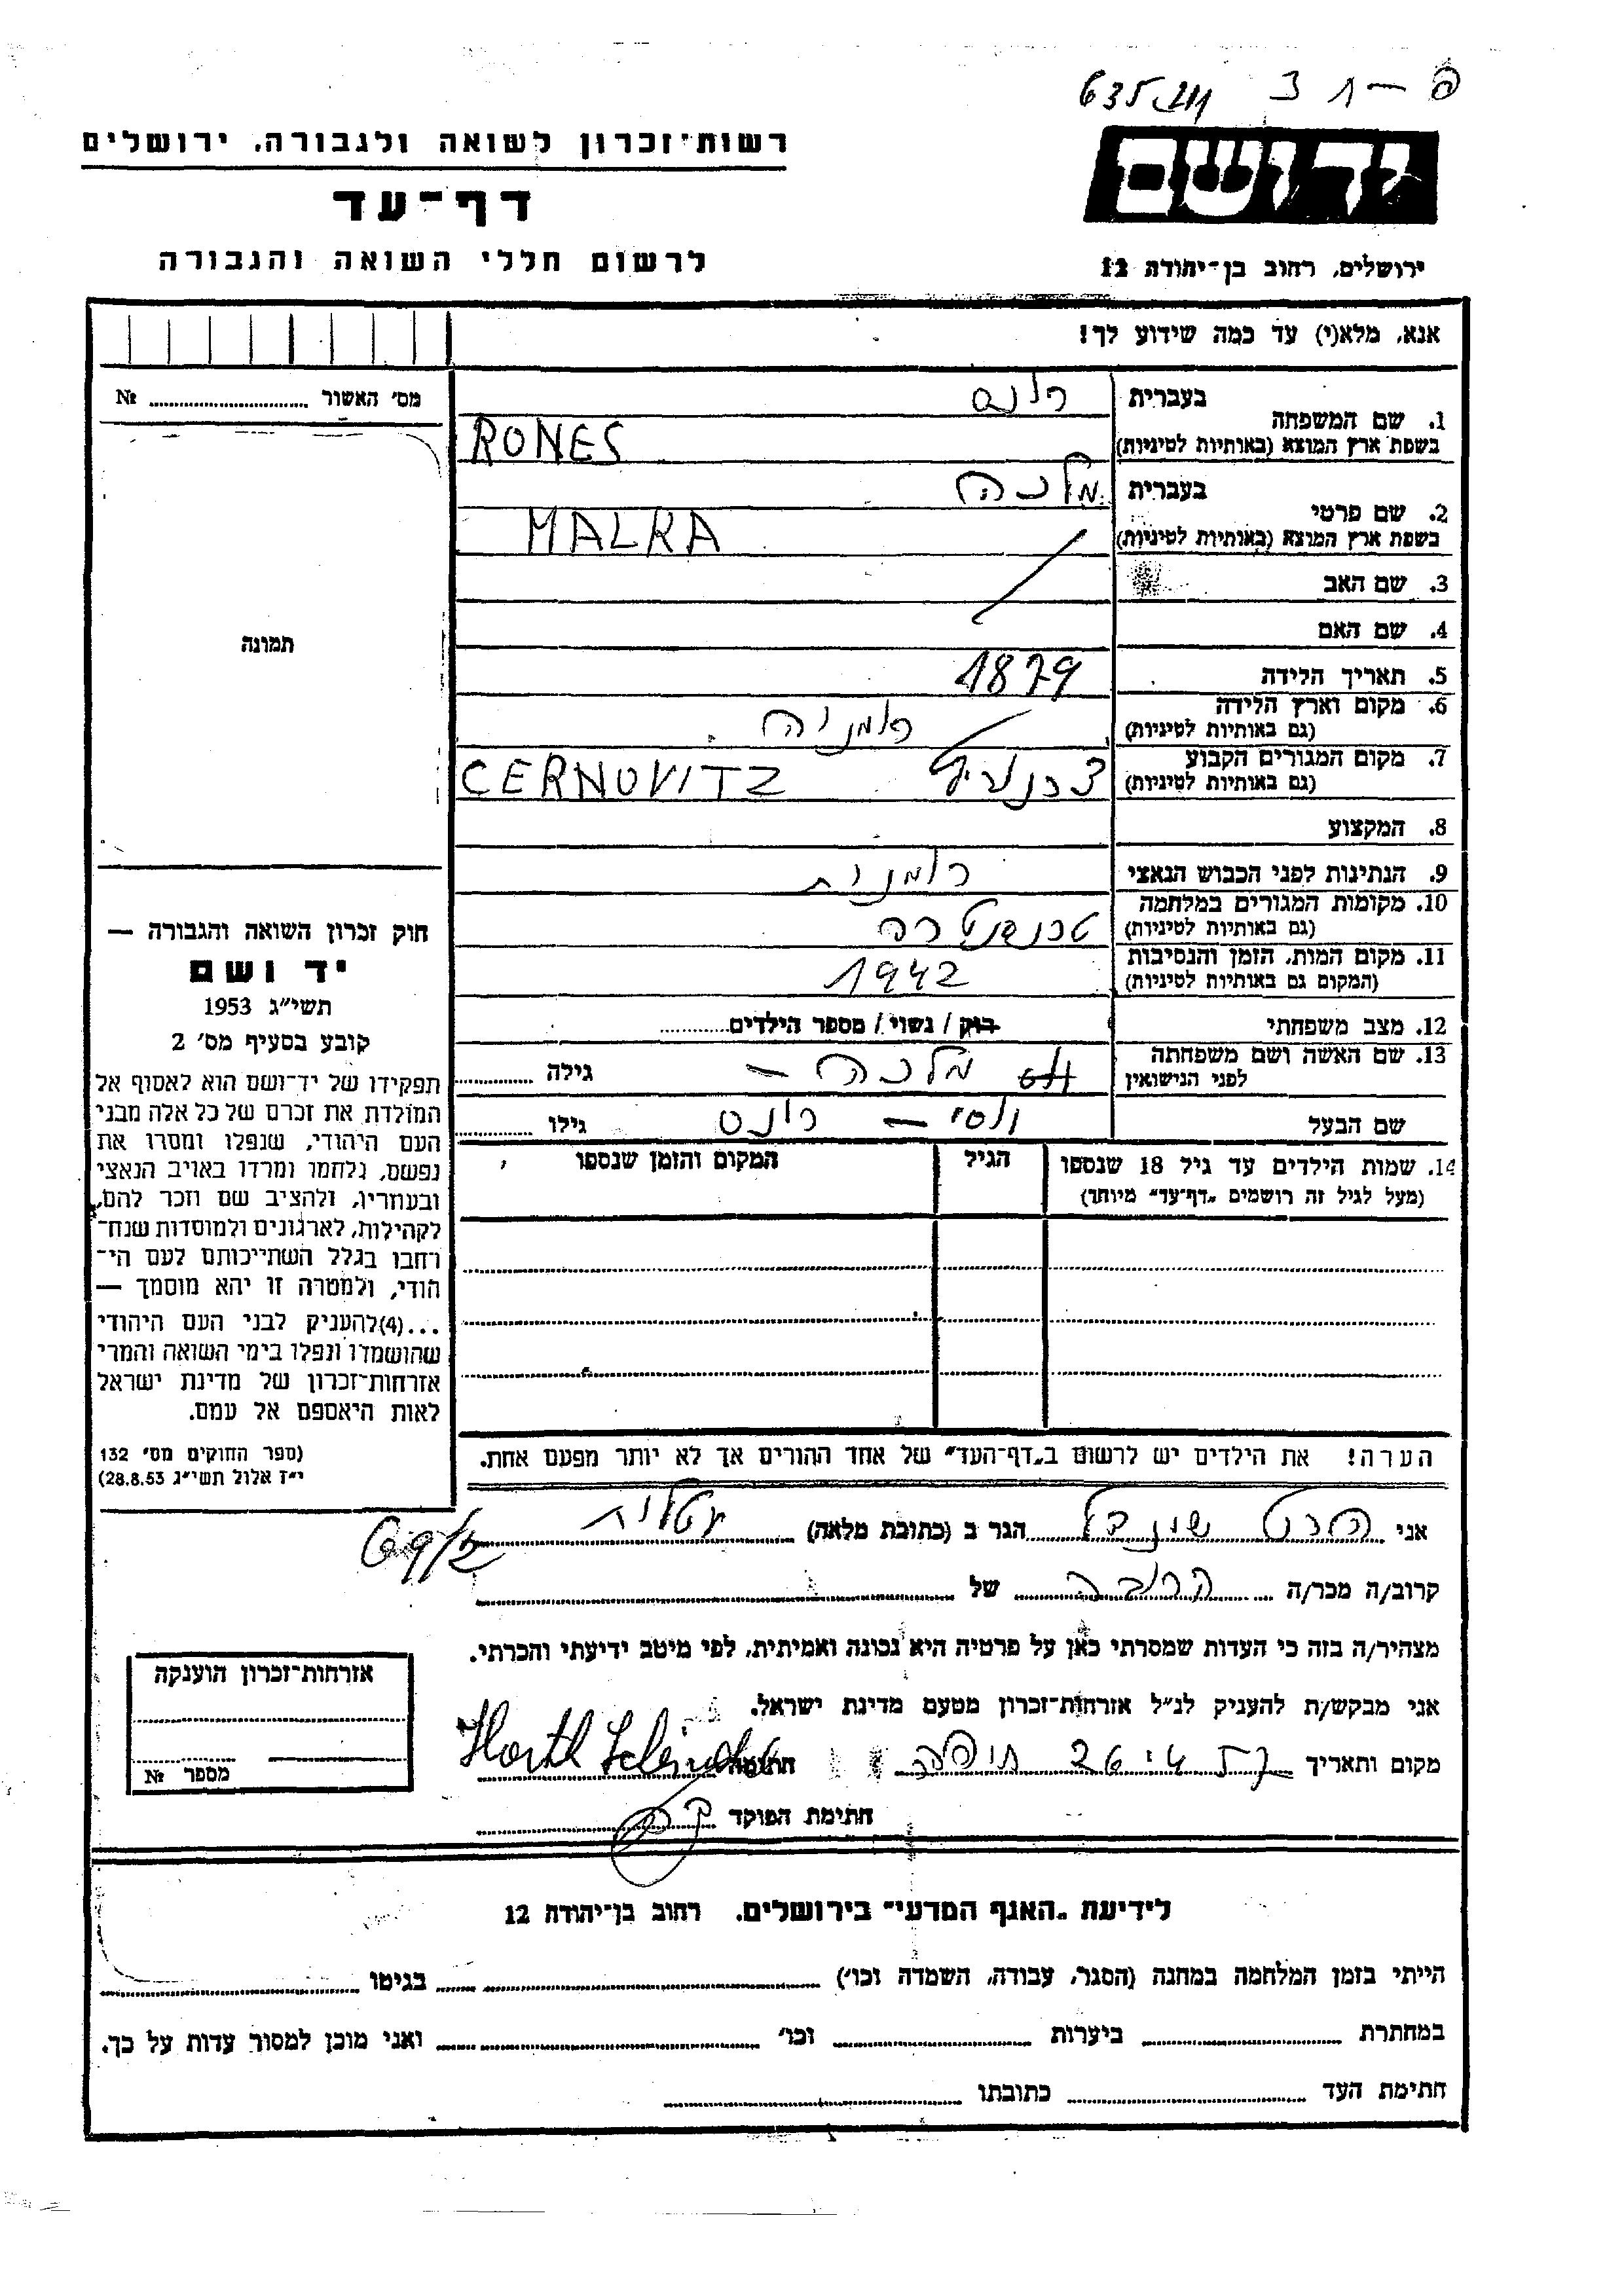 רשות־זכרון לשואה ולגבורה, ירושלים
דף־עד
לרשום חללי השואה והגבורה
יד ושם
ירושלים, רחוב בן־יהודה 12
אנא, מלא(י) עד כמה שידוע לך!
מס׳ האשור № 
תמונה
1. שם המשפחה בעברית רונס
בשפת ארץ המוצא (באותיות לטיניות) RONES
2. שם פרטי בעברית מלכה
בשפת ארץ המוצא (באותיות לטיניות) MALKA
3. שם האב
4. שם האם
5. תאריך הלידה 1879
6. מקום וארץ הלידה
(גם באותיות לטיניות) רומניה
7. מקום המגורים הקבוע
(גם באותיות לטיניות) צרנוביץ CERNOVITZ
8. המקצוע
9. הנתינות לפני הכבוש הנאצי רומנית
10. מקומות המגורים במלחמה
(גם באותיות לטיניות)
11. מקום המות, הזמן והנסיבות
(המקום גם באותיות לטיניות) 1942
12. מצב משפחתי רוק / נשוי / מספר הילדים
13. שם האשה ושם משפחתה
לפני הנישואין מלכה — גילה
שם הבעל — רונס גילו
14. שמות הילדים עד גיל 18 שנספו
(מעל לגיל זה רושמים „דף־עד” מיוחד)
הגיל
המקום והזמן שנספו
הערה! את הילדים יש לרשום ב„דף־העד” של אחד ההורים אך לא יותר מפעם אחת.
חוק זכרון השואה והגבורה —
יד ושם
תשי״ג 1953
קובע בסעיף מס׳ 2
תפקידו של יד־ושם הוא לאסוף אל
המולדת את זכרם של כל אלה מבני
העם היהודי, שנפלו ומסרו את
נפשם, נלחמו ומרדו באויב הנאצי
ובעוזריו, ולהציב שם וזכר להם,
לקהילות, לארגונים ולמוסדות שנח־
רחבו בגלל השתייכותם לעם הי־
הודי, ולמטרה זו יהא מוסמך —
...(4) להעניק לבני העם היהודי
שהושמדו ונפלו בימי השואה והמרי
אזרחות־זכרון של מדינת ישראל
לאות היאספם אל עמם.
(ספר החוקים מס׳ 132
י״ז אלול תשי״ג 28.8.53)
אני הרט שינדל הגר ב (כתובת מלאה) עטלית
קרוב/ה מכר/ה קרובה של
מצהיר/ה בזה כי העדות שמסרתי כאן על פרטיה היא נכונה ואמיתית, לפי מיטב ידיעתי והכרתי.
אני מבקש/ת להעניק לנ״ל אזרחות־זכרון מטעם מדינת ישראל.
מקום ותאריך חתימה
חתימת הפוקד
אזרחות־זכרון הוענקה
מספר №
לידיעת „האגף המדעי” בירושלים, רחוב בן־יהודה 12
הייתי בזמן המלחמה במחנה (הסגר, עבודה, השמדה וכו׳) בגיטו
במחתרת ביערות וכו׳ ואני מוכן למסור עדות על כך.
חתימת העד כתובתו